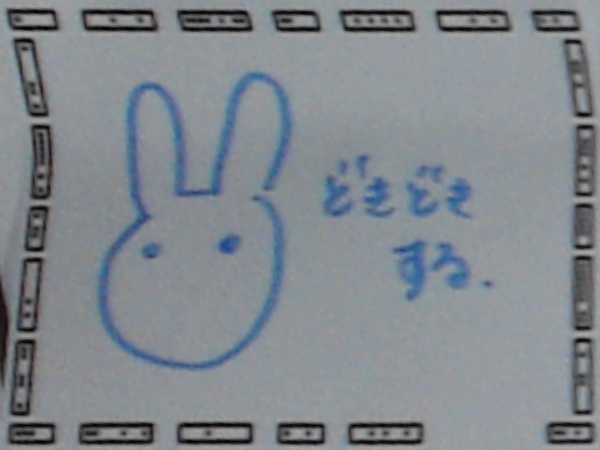 どきどき
する.